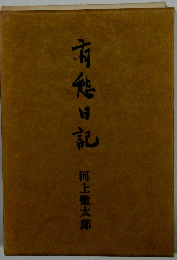 有愁日記
河上徹太郎